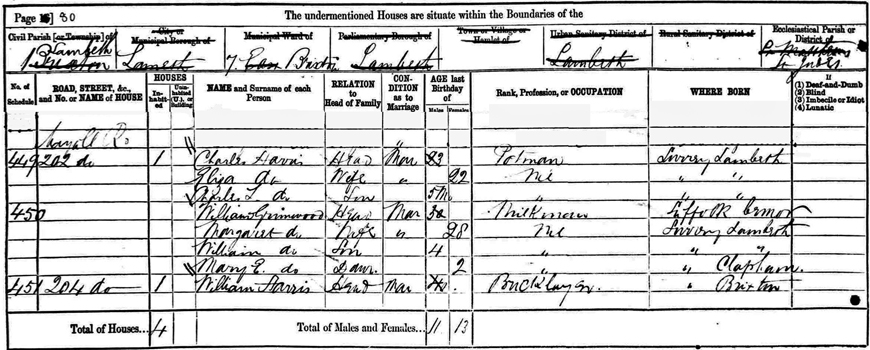 Page 80
The undermentioned Houses are situate within the Boundaries of the
Civil Parish [or Township] of
City or Municipal Borough of
Municipal Ward of
Parliamentary Borough of
Town or Village or Hamlet of
Urban Sanitary District of
Rural Sanitary District of
Ecclesiastical Parish or District of
Lambeth Brixton Lambeth Lambeth St Judes
No. of Schedule
ROAD, STREET, &c., and No. or NAME of HOUSE
HOUSES
Inhabited
Uninhabited (U.), or Building
NAME and Surname of each Person
RELATION to Head of Family
CONDITION as to Marriage
AGE last Birthday of
Males Females
Rank, Profession, or OCCUPATION
WHERE BORN
If
(1) Deaf-and-Dumb
(2) Blind
(3) Imbecile or Idiot
(4) Lunatic
Mayall Rd
449 202 do 1 Charles Harris Head Mar 23 Potman Surrey Lambeth
Eliza do Wife " 22 " "
Charles do Son 5m " "
450 William Grimwood Head Mar Milkman Suffolk
Margaret do Wife " 28 Surrey Lambeth
William do Son 4 " "
Mary E. do Daur. 2 " Clapham
451 204 do 1 William Harris Head Mar Bricklayer " Brixton
Total of Houses... 4 Total of Males and Females... 11 13